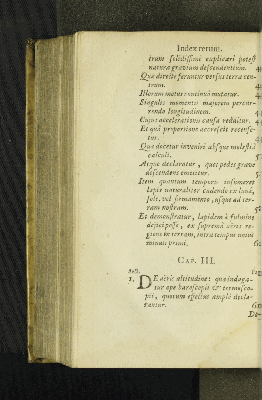 Index rerum.
trum felicissimè explicari potest
natura gravium descendentium.
Qua directè feruntur versus terra cen-
trum.
Illorum motus continuò mutatur.
Singulis momentis majorem percur-
rendo longitudinem.
Cujus accelerationis causa redditur.
Et quâ proportione accrescit recense-
tur.
Qua docetur inveniri absque molestiâ
calculi.
Atque declaratur, quot pedes grave
descendens emetitur.
Item quantum temporis insumeret
lapis naturaliter cadendo ex luna,
sole, vel firmamento, usque ad ter-
ram nostram.
Et demonstratur, lapidem à fulmine
dejici posse, ex suprema aëris re-
gione in terram, intra tempus unius
minuti primi.
CAP. III.
1. DE aëris altitudine: quæ indaga-
tur ope baroscopii & termosco-
pii, quorum effectus amplè decla-
rantur.
De-